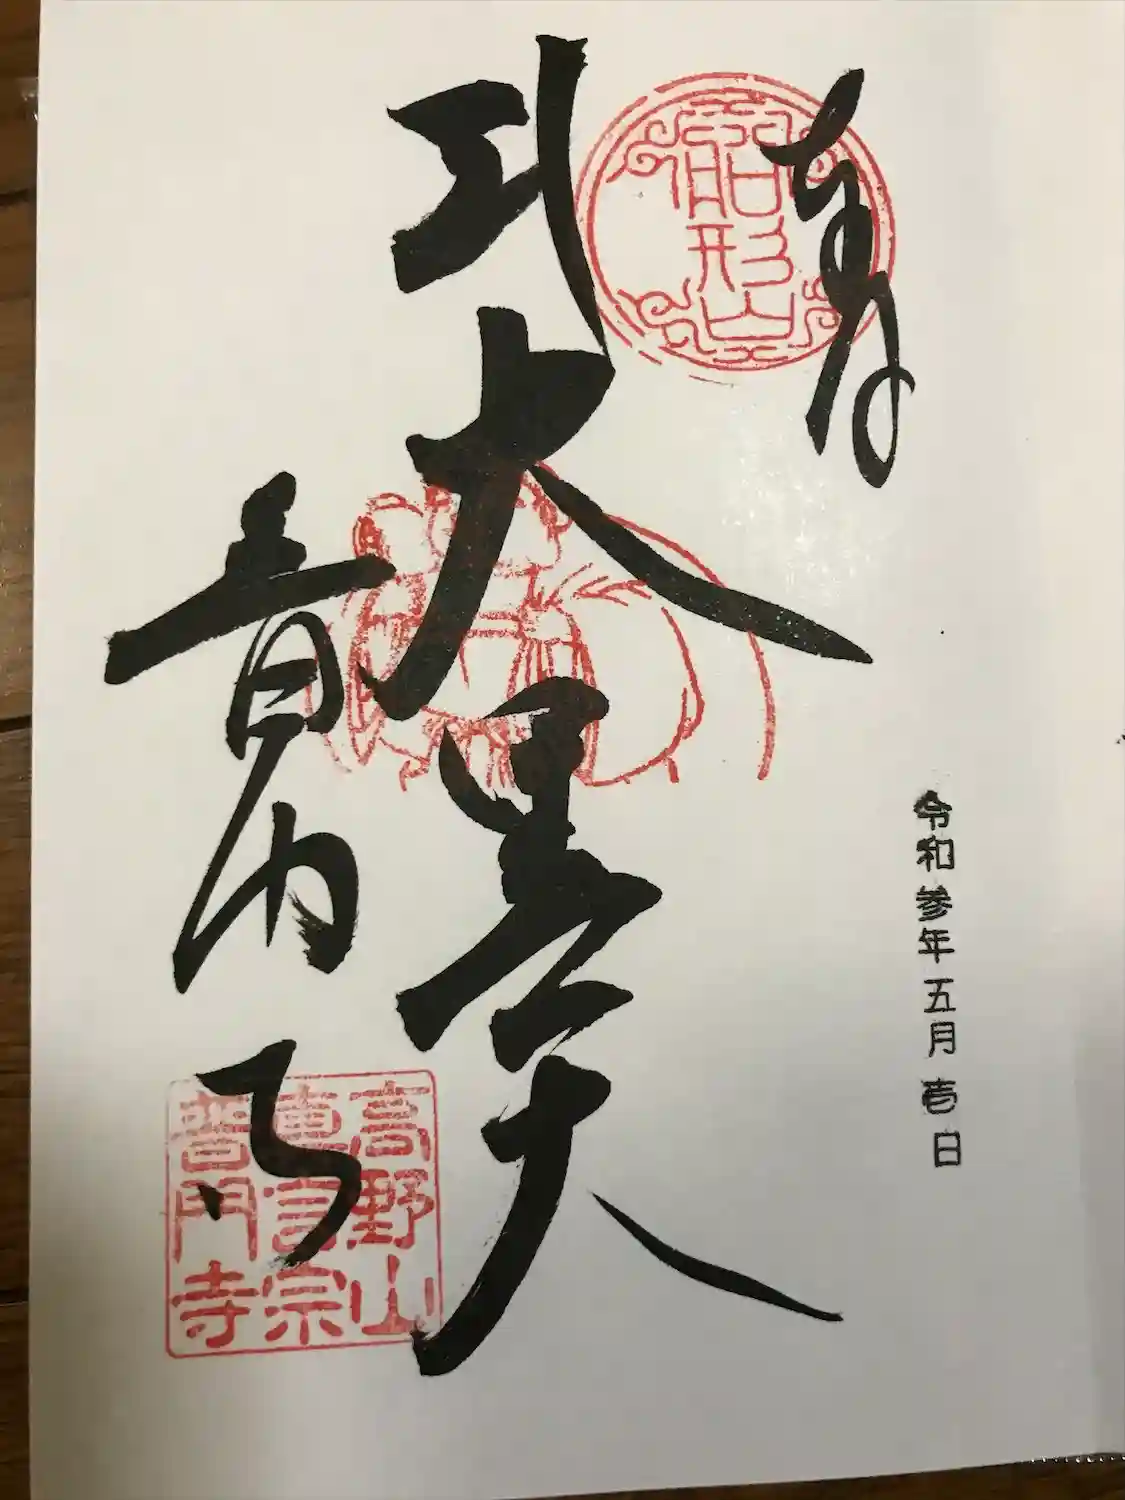 奉拝
船形山
令和参年五月壱日
大黒天
普門寺
高野山
真言宗
普門寺